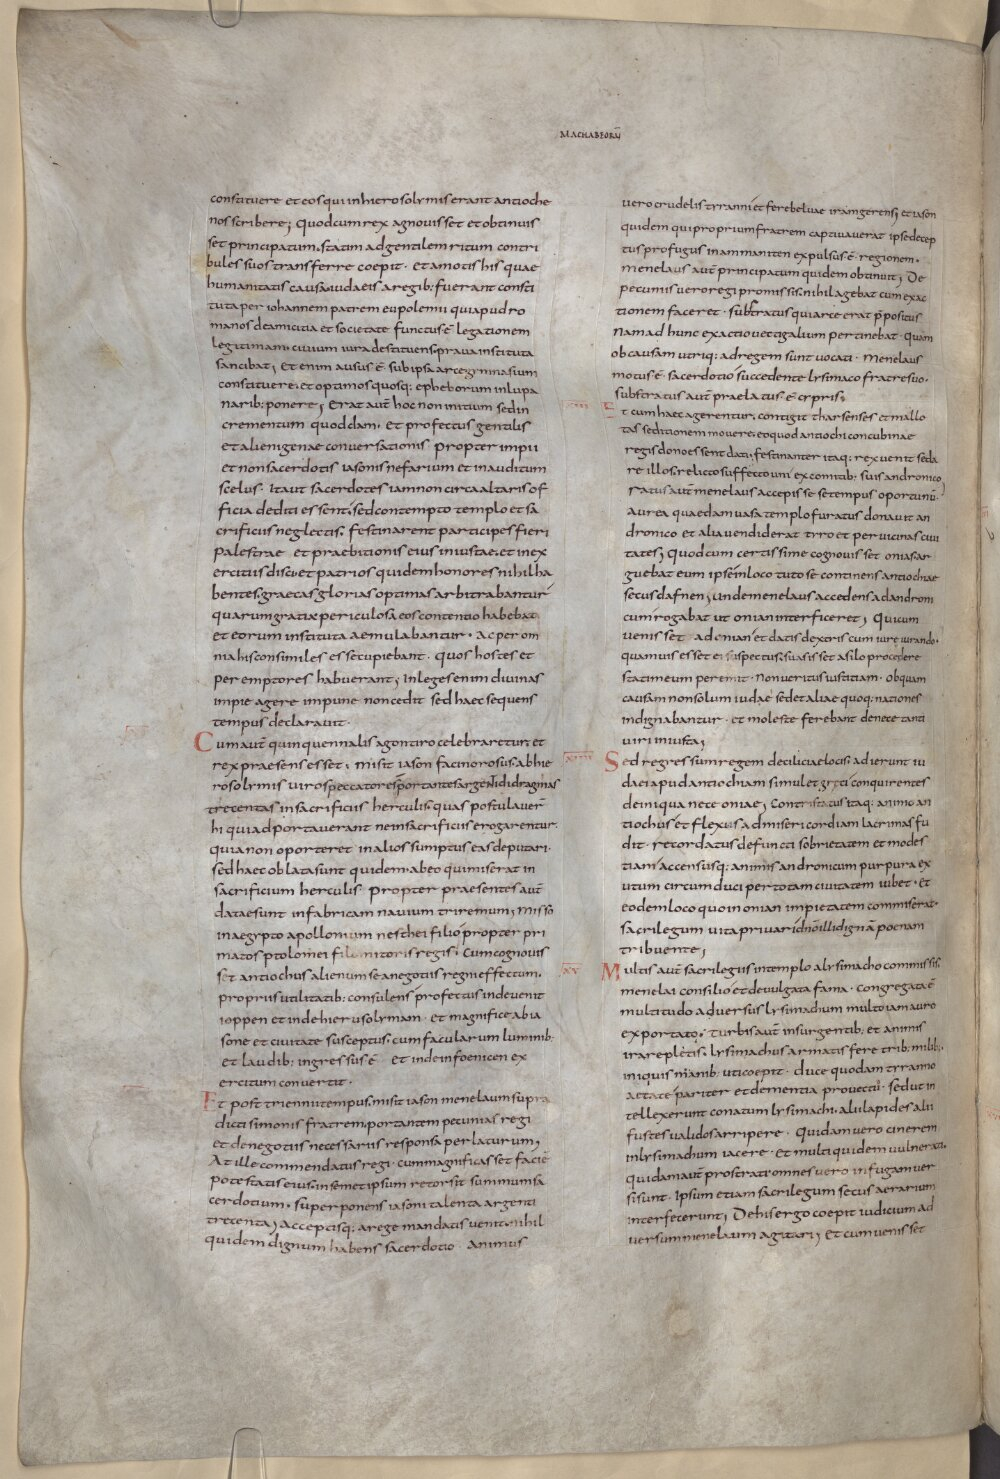 MACHABEORU
constituere et eos qui inhierosolymis erant antioche
nos scribere; Quodcum rex agnouisset et obtinuis
set principatum. statim adgentilem ritum contri
bules suos transferre coepit. Et amotis his quae
humanitatis causa iudaeis aregib: fuerant consti
tuta per iohannem patrem eupolemi qui apud ro
manos deamicitia et societate functus ē legationem
legitimam. ciuium iura destituens praua instituta
sancibat; Etenim ausus ē subipsa arce gymnasium
constituere. et optimos quosq: epheborum inlupa
narib: ponere; Erat aut̄ hoc non initium sed in
crementum quoddam. et profectus gentilis
et alienigenae conuersationis propter impii
et non sacerdotis iasonis nefarium et inauditum
scelus. Ita ut sacerdotes iam non circa altaris of
ficia dediti essent. sed contempto templo et sa
crificiis neglectis. festinarent participes fieri
palestrae et praebitionis eius iniustae. et inex
ercitiis disci. et patrios quidem honores nihil ha
bentes. graecas glorias optimas arbitrabantur
quarum gratia periculosa eos contentio habebat
et eorum instituta aemulabantur. ac per om
nia his consimiles esse cupiebant. quos hostes et
peremptores habuerant; inleges enim diuinas
impie agere impune non cedit sed haec sequens
tempus declarauit.
Cum aut̄ quinquennalis agon tiro celebraretur. et
rex praesens esset. misit iason facinorosus. ab hie
rosolymis uiros peccatores portantes argenti didragmas
trecentas insacrificiis herculis. quas postulauer̄
hi qui adportauerant ne insacrificiis erogarentur.
quia non oporteret inalios sumptus eas deputari.
sed haec oblata sunt quidem. abeo qui miserat in
sacrificium herculis propter praesentes aut̄
datae sunt infabricam nauium triremum; Misso
inaegypto apollonium nesthei filio propter pri
matos ptolomei filomitoris regis. Cum cognouis
set antiochus alienum se anegotiis regni effectum.
propriis utilitatib: consulens profectus inde uenit
ioppen et inde hierusolymam. et magnifice abia
sone et ciuitate susceptus. cum facularum luminib:
et laudib: ingressus ē et inde infoenicen ex
ercitum conuertit.
Et post triennii tempus. misit iason menelaum supra
dicti simonis fratrem. portantem pecunias regi
et denegotiis necessariis responsa perlaturum;
At ille commendatus regi. cum magnificasset facie
potestatis eius. insemetipsum retorsit summum sa
cerdotium. superponens iasoni talenta argenti
trecenta; acceptisq: arege mandatis uenit. nihil
quidem dignum habens sacerdotio. Animus
uero crudelis tyranni et ferae beluae iram gerens; et iason
quidem qui proprium fratrem captiuauerat ipse decep
tus profugus in ammaniten expulsus ē regionem.
menelaus aut̄ principatum quidem obtinuit; De
pecuniis uero regi promissis. nihil agebat cum exac
tionem faceret. sustratus qui arce erat p̄positus
nam ad hunc exactio uectigalium pertinebat. Quam
ob causam utriq: adregem sunt uocati. Menelaus
motus ē sacerdotio succedente lysimaco fratre suo.
substratus aut̄ praelatus. ē cypris;
Et cum haec agerentur. contigit tharsenses et mallo
tas seditionem mouere. eo quod antiochi concubinae
regis dono essent dati; festinanter itaq: rex uenit seda
re illos. relicto suffecto uni ex comitib: suis andronico
ratus aut̄ menelaus accepisse se tempus oportunū.
aurea quaedam uasa templo furatus donauit an
dronico et alia uendiderat tyro et per uicinas ciui
tates; Quod cum certissime cognouisset onias ar
guebat eum ipse in loco tuto se continens antiochiae
secus dafnen; unde menelaus accedens adandroni
cum rogabat ut onian interficeret; Qui cum
uenisset adonian et datis dextris cum iure iurando.
quamuis esset ei suspectus. suasisset asilo procedere
statim eum peremit. non ueritus iustitiam. Ob quam
causam non solum iudae sed et aliae quoq: nationes
indignabantur. et moleste ferebant denece tanti
uiri iniusta;
Sed regressum regem deciliciae locis. adierunt iu
daei apud antiochiam simul et greci conquirentes
deiniqua nece oniae; Contristatus itaq: animo an
tiochus et flexus ad misericordiam lacrimas fu
dit. recordatus defuncti sobrietatem et modes
tiam accensisq: animis andronicum purpura ex
utum circumduci per totam ciuitatem iubet. et
eodem loco quo in onian impietatem commiserat.
sacrilegum uita priuari dno illi dignā poenam
tribuente;
Multis aut̄ sacrilegiis in templo alysimacho commissis.
menelai consilio et deuulgata fama. congregata ē
multitudo aduersus lysimachum multo iam auro
exportato. turbis aut̄ insurgentib: et animis
ira repletis. lysimachus armatis fere trib: milib:
iniquis manib: uti coepit. duce quodam tyranno
aetate pariter et dementia prouectu. sed ut in
tellexerunt conatum lysimachi. alii lapides alii
fustes ualidos arripere. quidam uero cinerem
inlysimachum iacere. et multi quidem uulnerati.
quidam aut̄ prostrati omnes uero infugam uer
si sunt. ipsum etiam sacrilegum secus aerarium
interfecerunt; De his ergo coepit iudicium ad
uersum menelaum agitari; Et cum uenisset